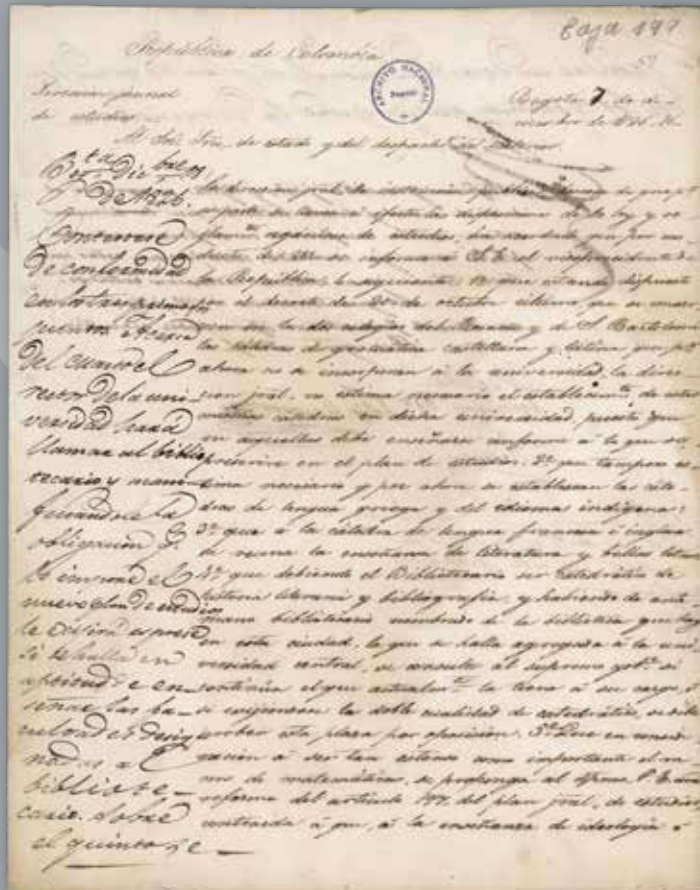 Caja 199
57
República de Colombia
ARCHIVO NACIONAL
Dirección jeneral
de estudios
Bogotá 7 de di-
ciembre de 1826. 16
Al Sor. Srio. de estado y del despacho del interior
Bog.ta Dic.bre 18
de 1826.
Contéstese
de conformidad
en los tres primeros
puntos. Acerca
del cuarto el
rector de la uni-
versidad hará
llamar al biblio-
tecario y mani-
festándole la
obligación q.
le impone el
nuevo plan de estudios
le exijirá esprese
si se halla en
aptitud de en-
señar las
desig-
nadas al
bibliote-
cario. Sobre
el quinto se
La dirección jral. de instrucción pública deseosa de que p.r
su parte se lleven a efecto las disposiciones de la ley y re-
glam.to orgánicos de estudios, ha acordado que por con-
ducto de se informe a S. E. el vicepresidente de
la República lo siguiente: 1º que estando dispuesto
en el decreto de 20 de octubre último que se conser-
ven en los dos colejios del Rosario y de S. Bartolomé
las cátedras de gramática castellana y latina que p.r
ahora no se incorporan a la universidad, la direc-
cion jral. no estima necesario el establecim.to de estas
mismas cátedras en dicha universidad, puesto que
en aquellos debe enseñarse conforme a lo que se
prescribe en el plan de estudios: 2º que tampoco es-
tima necesario q por ahora se establezcan las cáte-
dras de lengua griega y del idioma indígena:
3º que a la cátedra de lengua francesa e inglesa
se reuna la enseñanza de literatura y bellas letras
4º que debiendo el Bibliotecario ser catedrático de
historia literaria y bibliografía, y habiendo de ante
mano bibliotecario nombrado de la biblioteca que hay
en esta ciudad, la que se halla agregada a la uni-
versidad central, se consulte al supremo gob.no si
continúa el que actualm.te la tiene a su cargo, o
si exijiendose la doble cualidad de catedrático, se debe
proveer esta plaza por oposicion. 5º Que en consid-
eración a ser tan estenso como importante el ra-
mo de matemáticas, se proponga al mismo P. E. una
reforma del artículo 197 del plan jral. de estudios
contraida a que, a la enseñanza de ideología o